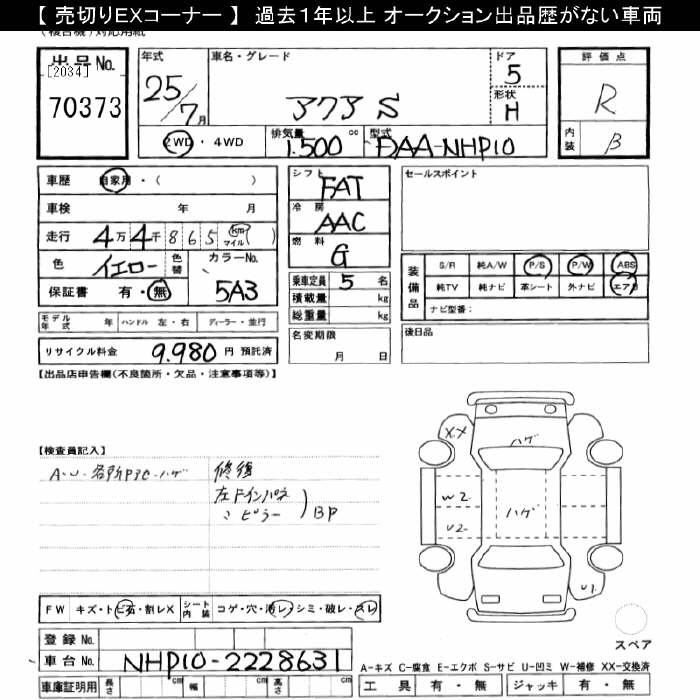 【 売切りEXコーナー 】 過去1年以上 オークション出品歴がない車両
(複合機)対応用紙
出品No.
[2034]
70373
年式
25/7月
車名・グレード
アクア S
ドア
5
形状
H
評価点
R
内装
B
2WD ・ 4WD
排気量
1.500 cc
型式
DAA-NHP10
車歴 自家用・( )
車検 年 月
走行 4万4千865 km マイル ( )
色 イエロー 色替
カラーNo.
5A3
保証書 有・無
シフト
FAT
冷房
AAC
燃料
G
乗車定員 5 名
積載量 kg
総重量 kg
セールスポイント
装備品
S/R 純A/W P/S P/W ABS
純TV 純ナビ 革シート 外ナビ エアB
ナビ型番:
モデル年式 年 ハンドル 左・右 ディーラー・並行
名変期限
月 日
後日品
リサイクル料金 9.980 円 預託済
【出品店申告欄(不良箇所・欠品・注意事項等)】
【検査員記入】
A-U 各所
ハゲ
修復
左Fインパネ
〃 ピラー
BP
XX
ハゲ
W2
U2
ハゲ
U1
スペア
FW キズ・ト ビ石・割レX シート内装 コゲ・穴・汚レ・シミ・破レ・スレ
登録 No.
車台 No. NHP10-2228631
車庫証明用 長さ cm 幅 cm 高さ cm
A-キズ C-腐食 E-エクボ S-サビ U-凹ミ W-補修 XX-交換済
工具 有・無 ジャッキ 有・無